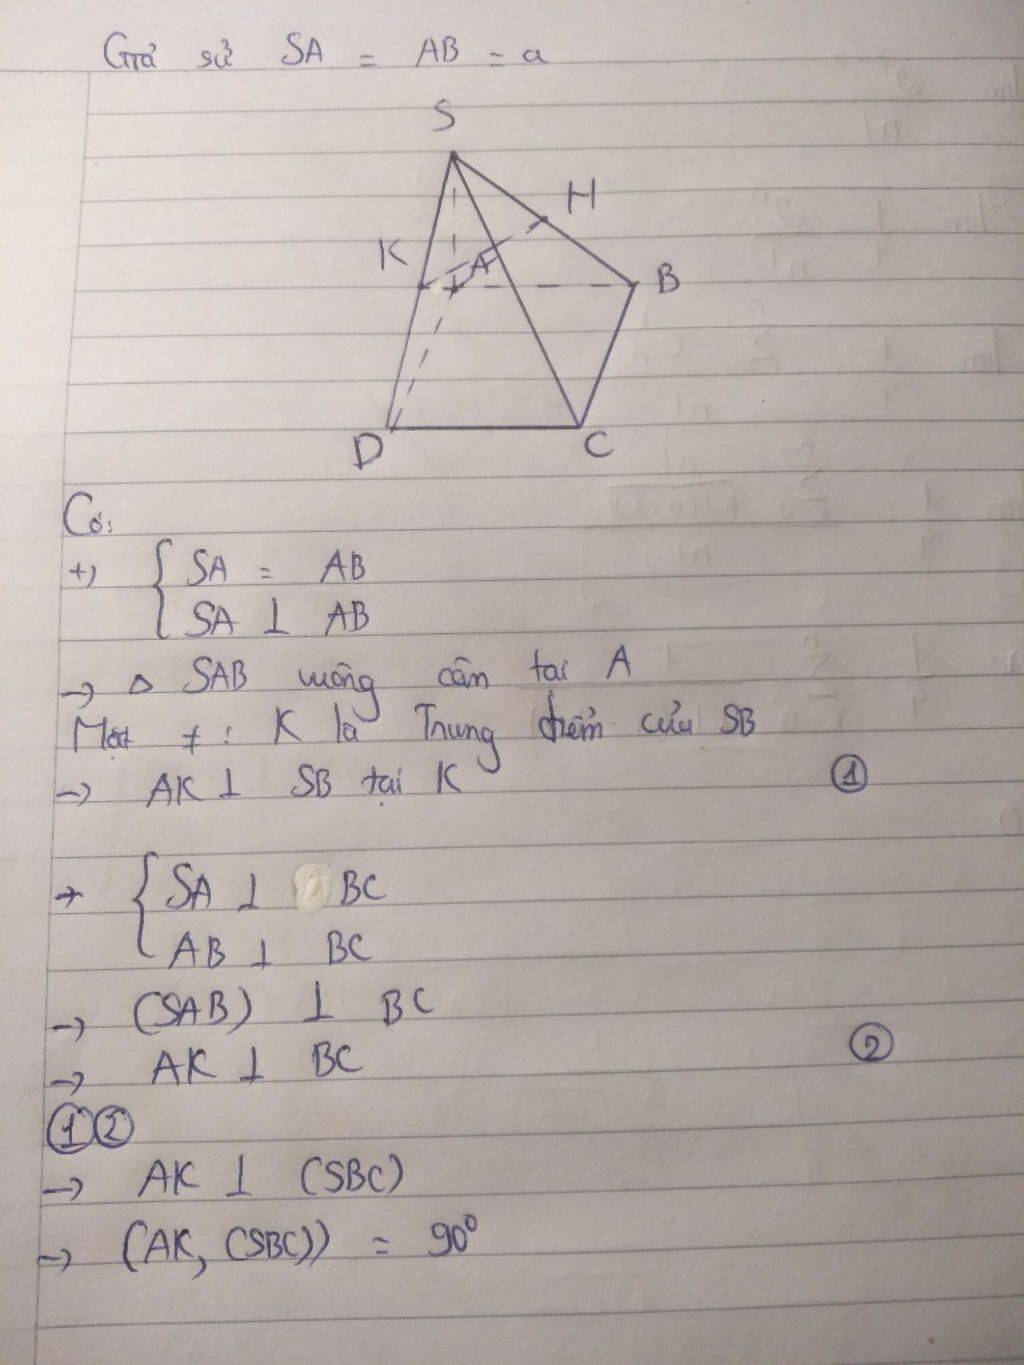 Giả sử SA = AB = a
S
H
K
A
B
D
C
Có:
+) { SA = AB
SA ⊥ AB
→ △ SAB vuông cân tại A
Mặt ≠ : K là Trung điểm của SB
→ AK ⊥ SB tại K ①
+ { SA ⊥ BC
AB ⊥ BC
→ (SAB) ⊥ BC
→ AK ⊥ BC ②
① ②
→ AK ⊥ (SBC)
→ (AK, (SBC)) = 90°